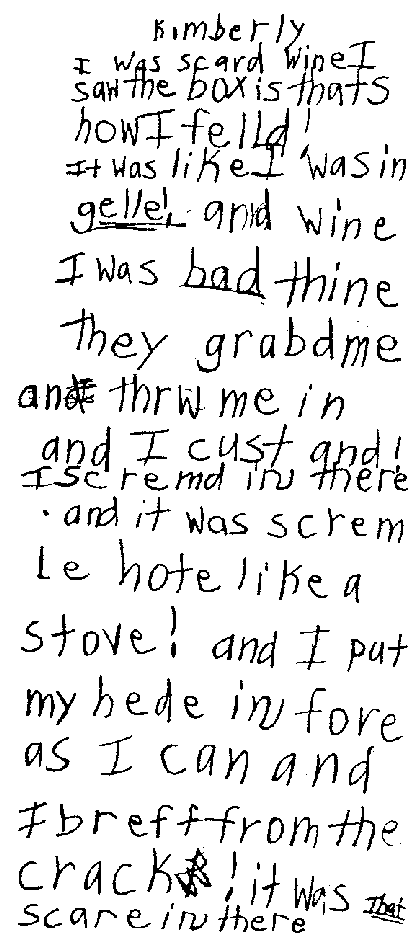 Kimberly
I was scard wine I
saw the boxis thats
how I felld!
It was like I was in
gelle! and wine
I was bad thine
they grabdme
and thrw me in
and I cust and!
I scremd in there
. and it was screm
Le hote like a
stove! and I put
my hede in fore
as I can and
I breff from the
crack! it was that
scare in there